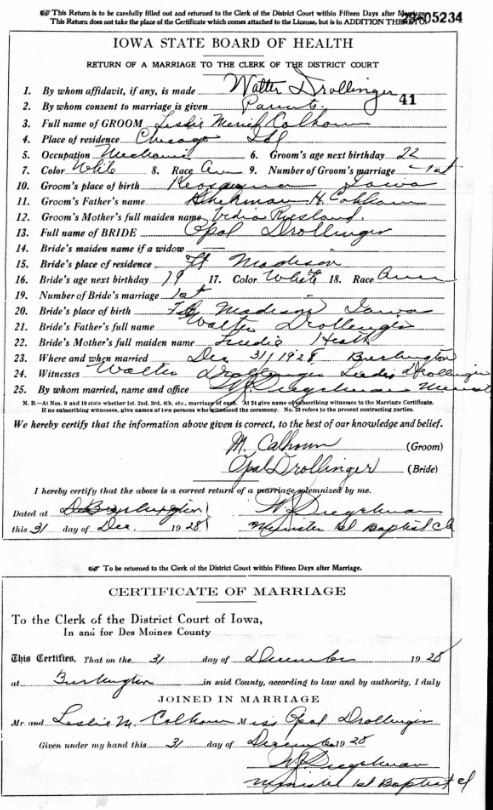 ☞ This Return is to be carefully filled out and returned to the Clerk of the District Court within Fifteen Days after Marriage.
This Return does not take the place of the Certificate which comes attached to the License, but is in ADDITION THERETO.
05234
IOWA STATE BOARD OF HEALTH
RETURN OF A MARRIAGE TO CLERK OF THE DISTRICT COURT
1. By whom affidavit, if any, is made Walter Drollinger
2. By whom consent to marriage is given Parents 41
3. Full name of GROOM Leslie Calhoun
4. Place of residence Chicago Ill
5. Occupation Mechanic 6. Groom's age next birthday 22
7. Color White 8. Race Am 9. Number of Groom's marriage 1st
10. Groom's place of birth Keosauqua Iowa
11. Groom's Father's name H. Calhoun
12. Groom's Mother's full maiden name
13. Full name of BRIDE Opal Drollinger
14. Bride's maiden name if a widow
15. Bride's place of residence Ft Madison
16. Bride's age next birthday 19 17. Color White 18. Race Amer
19. Number of Bride's marriage 1st
20. Bride's place of birth Ft Madison Iowa
21. Bride's Father's full name Walter Drollinger
22. Bride's Mother's full maiden name Heath
23. Where and when married Dec 31/1928 Burlington
24. Witnesses Walter Drollinger Drollinger
25. By whom married, name and office
N. B.—At Nos. 9 and 19 state whether 1st, 2nd, 3rd, 4th, etc., marriage of each. At 24 give name of subscribing witnesses to the Marriage Certificate.
If no subscribing witnesses, give names of two persons who witnessed the ceremony. No. 23 refers to the present contracting parties.
We hereby certify that the information above given is correct, to the best of our knowledge and belief.
M. Calhoun (Groom)
Opal Drollinger (Bride)
I hereby certify that the above is a correct return of a marriage solemnized by me.
Dated at Burlington
this 31 day of Dec. 1928 Minister 1st Baptist Ch
☞ To be returned to the Clerk of the District Court within Fifteen Days after Marriage.
CERTIFICATE OF MARRIAGE
To the Clerk of the District Court of Iowa,
In and for Des Moines County
This Certifies, That on the 31 day of December 1928
at Burlington in said County, according to law and by authority, I duly
JOINED IN MARRIAGE
Mr. and Leslie M. Calhoun Miss Opal Drollinger
Given under my hand this 31 day of December 1928
Minister 1st Baptist Ch